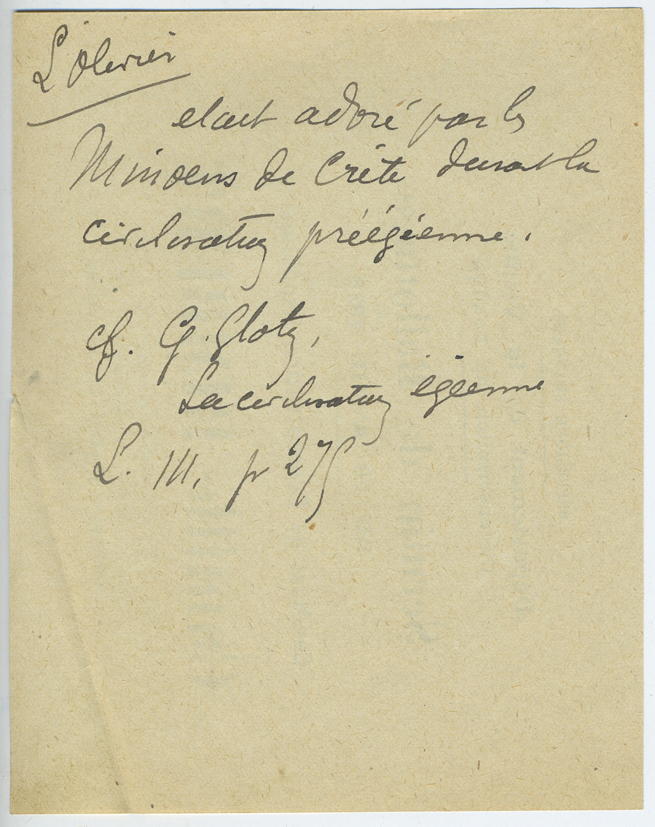 L'Olivier
etait adoré par les
Minoens de Crète durant la
civilisation préégéenne.
cf. G. Glotz,
La civilisation égéenne
L. III, p 275